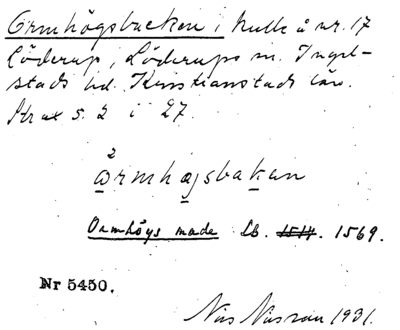 Ormhögsbacken i kulle å nr. 17
Löderup, Löderups sn. Ingel-
stads hd. Kristianstads län.
Strax s. 2 i 27.
2
ormhøgsbakan
Ormhöys made Lb. 1514. 1569.
Nr 5450.
Nils 1931.